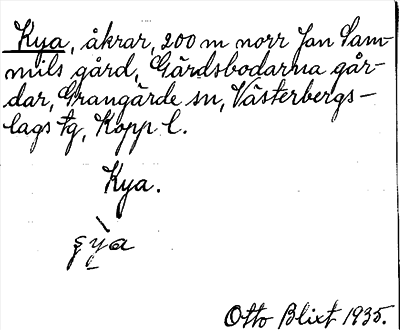 Kya, åkrar, 200 m norr Jan Sam-
mils gård, Gårdsbodarna går-
dar, Grangärde sn, Västerbergs-
lags tg, Kopp l.
Kya.
Otto Blixt 1935.